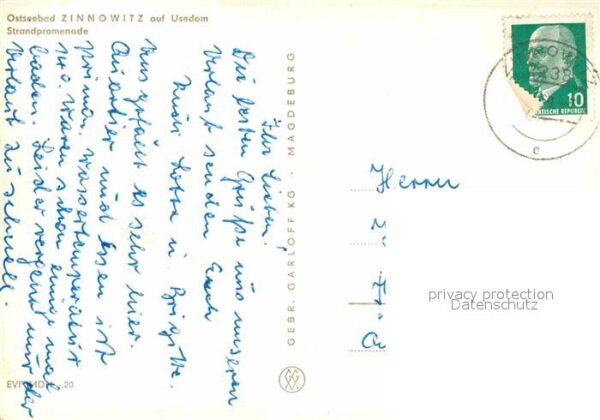 Ostseebad ZINNOWITZ auf Usedom
Strandpromenade
Ihr Lieben!
Die besten Grüße aus unserem
Urlaub senden Euch
Lotte u. Brigitte.
Uns gefällt es sehr hier.
Quartier und Essen ist
prima. Wassertemperatur
14°. Waren schon einige mal
baden. Leider vergeht nur der
Urlaub zu schnell.
GEBR. GARLOFF KG · MAGDEBURG
EVP MDN -.20
10
DEMOKRATISCHE REPUBLIK
2238
c
Herrn
privacy protection
Datenschutz